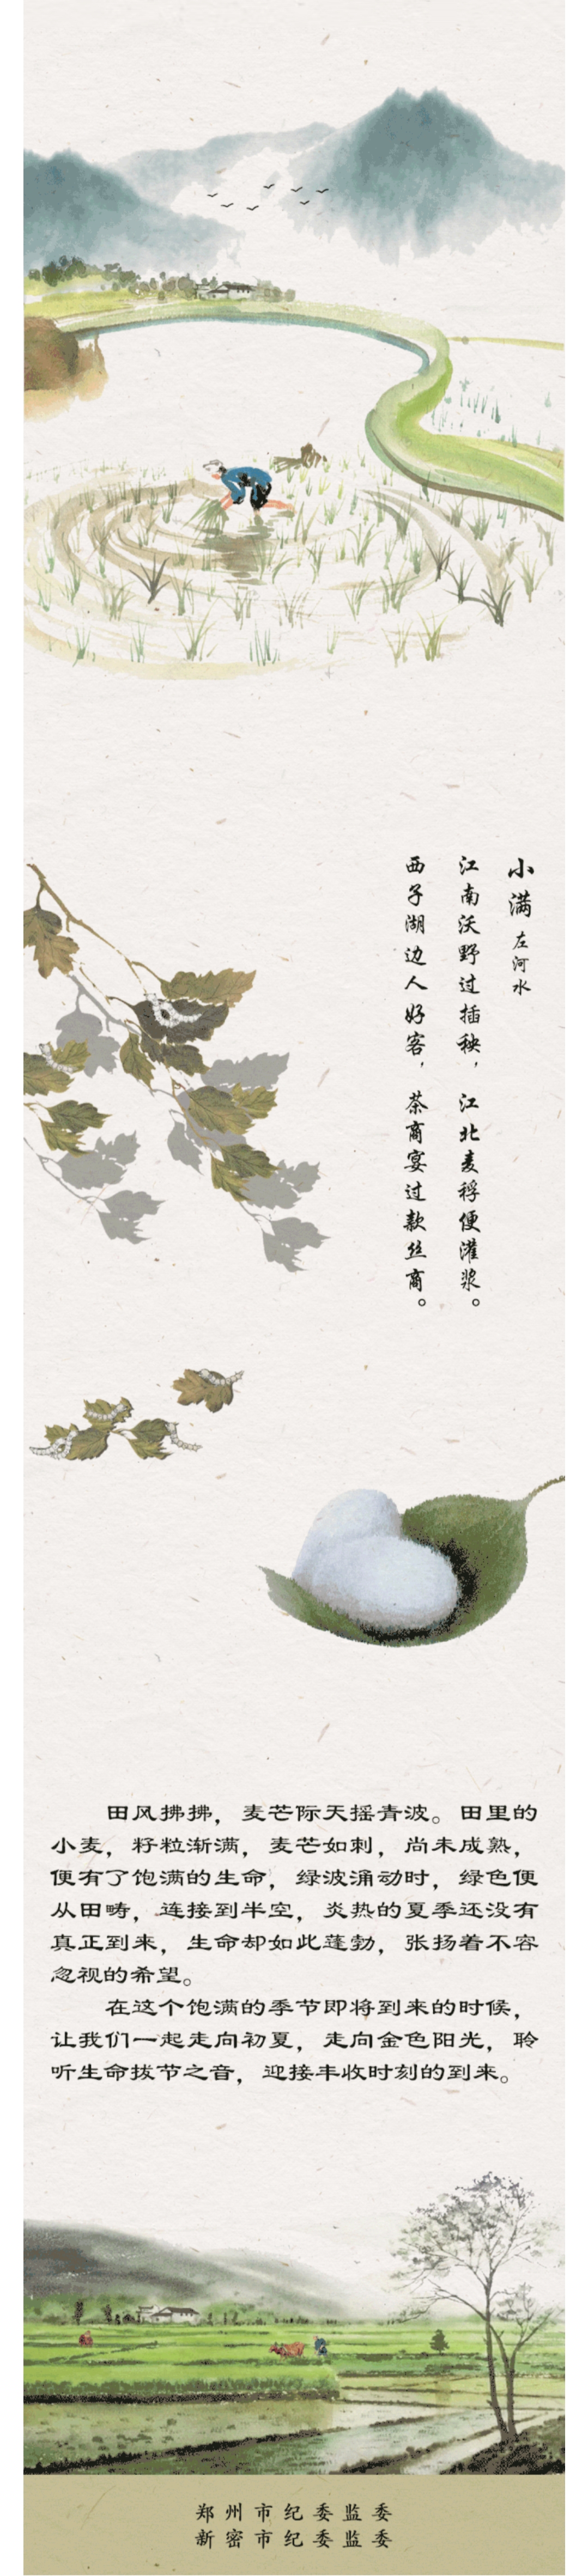 小满 左河水
江南沃野过插秧，江北麦稃便灌浆。
西子湖边人好客，茶商宴过款丝商。
田风拂拂，麦芒际天摇青波。田里的
小麦，籽粒渐满，麦芒如刺，尚未成熟，
便有了饱满的生命，绿波涌动时，绿色便
从田畴，连接到半空，炎热的夏季还没有
真正到来，生命却如此蓬勃，张扬着不容
忽视的希望。
在这个饱满的季节即将到来的时候，
让我们一起走向初夏，走向金色阳光，聆
听生命拔节之音，迎接丰收时刻的到来。
郑州市纪委监委
新密市纪委监委